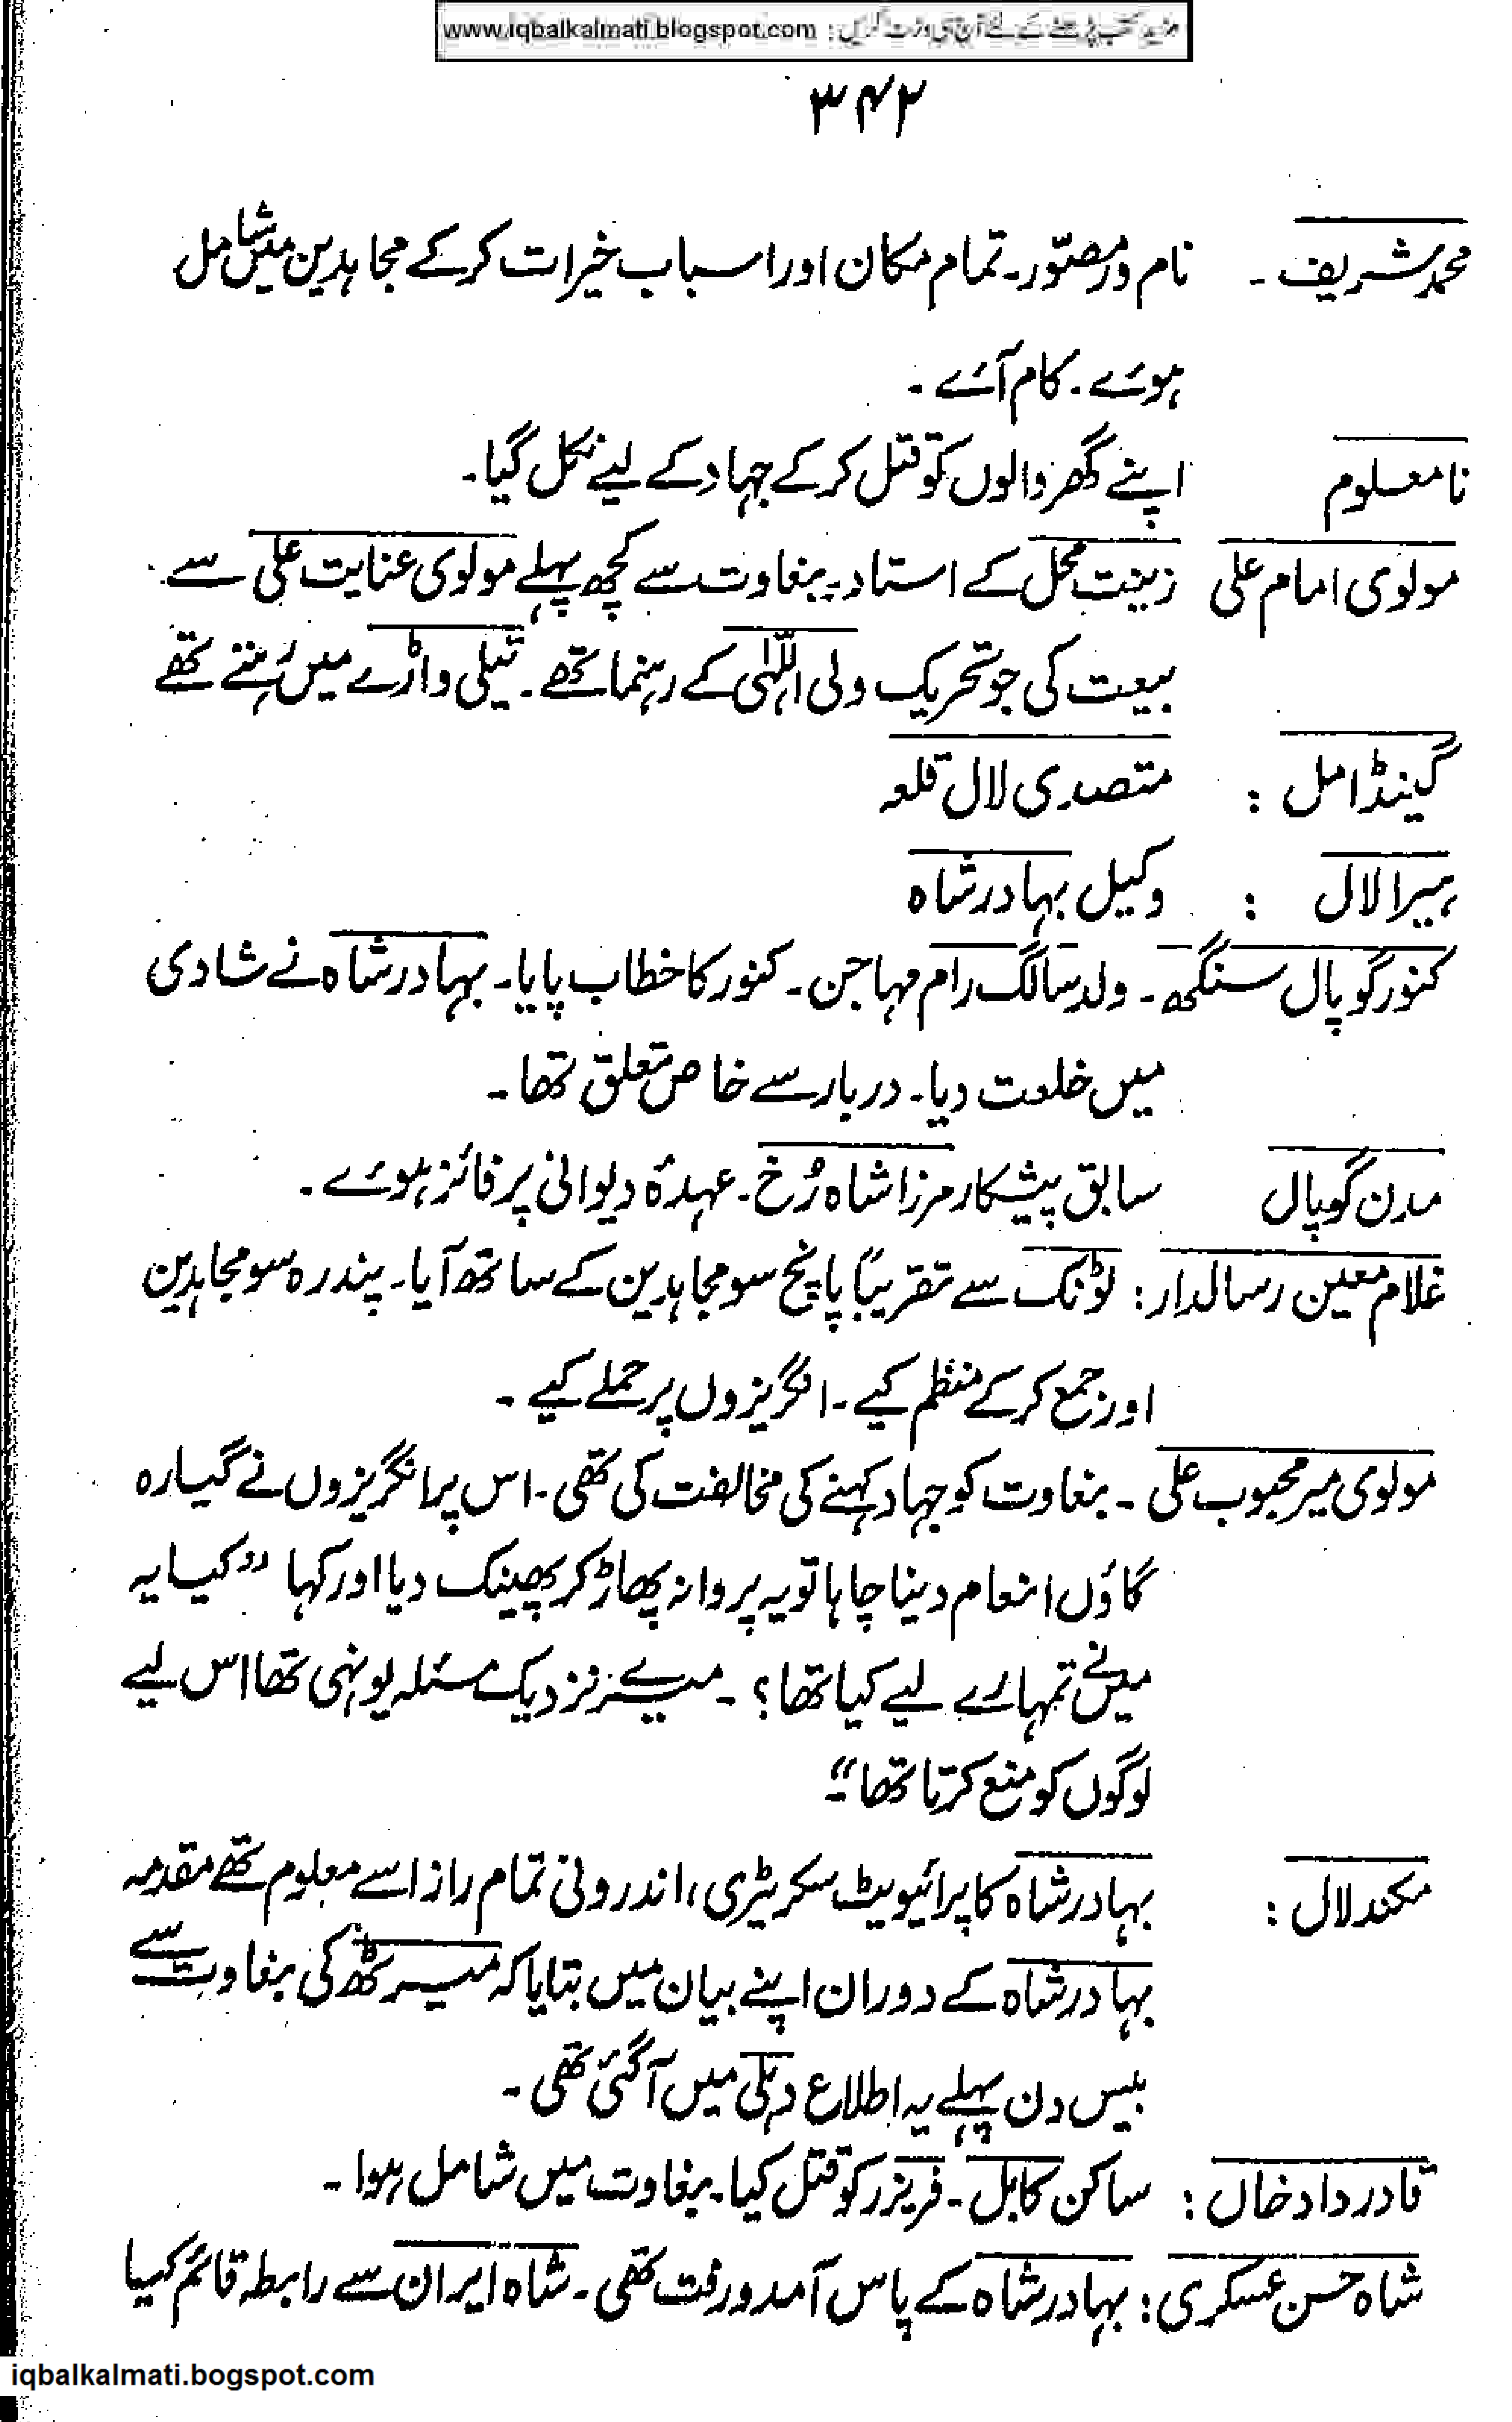 مزید کتب پڑھنے کے لئے آج ہی وزٹ کریں : www.iqbalkalmati.blogspot.com
۳۴۲
محمد شریف ۔ نام ور مصوّر۔ تمام مکان اور اسباب خیرات کرکے مجاہدین میں شامل
ہوئے ۔ کام آئے ۔
نامعلوم اپنے گھر والوں کو قتل کرکے جہاد کے لیے نکل گیا۔
مولوی امام علی زینت محل کے استاد۔ بغاوت سے کچھ پہلے مولوی عنایت علی سے
بیعت کی جو تحریک ولی اللّٰہی کے رہنما تھے۔ تیلی واڑے میں رہتے تھے
گینڈا مل : متصدی لال قلعہ
ہیرا لال : وکیل بہادر شاہ
کنور گوپال سنگھ ۔ ولد سالگ رام مہاجن ۔ کنور کا خطاب پایا۔ بہادر شاہ نے شادی
میں خلعت دیا۔ دربار سے خاص تعلق تھا ۔
مدن گوپال سابق پیشکار مرزا شاہ رُخ ۔ عہدۂ دیوانی پر فائز ہوئے ۔
غلام معین رسالدار : ٹونک سے تقریباً پانچ سو مجاہدین کے ساتھ آیا۔ پندرہ سو مجاہدین
اور جمع کرکے منظم کیے ۔ انگریزوں پر حملے کیے ۔
مولوی میر محبوب علی ۔ بغاوت کو جہاد کہنے کی مخالفت کی تھی ۔ اس پر انگریزوں نے گیارہ
گاؤں انعام دینا چاہا تو یہ پروانہ پھاڑ کر پھینک دیا اور کہا ”کیا یہ
میں نے تمہارے لیے کیا تھا؟ ۔ میرے نزدیک مسئلہ یونہی تھا اس لیے
لوگوں کو منع کرتا تھا“۔
مکند لال : بہادر شاہ کا پرائیویٹ سکریٹری، اندرونی تمام راز اسے معلوم تھے مقدمہ
بہادر شاہ کے دوران اپنے بیان میں بتایا کہ میرٹھ کی بغاوت سے
بیس دن پہلے یہ اطلاع دہلی میں آگئی تھی ۔
قادر داد خاں : ساکن کابل ۔ فریزر کو قتل کیا۔ بغاوت میں شامل ہوا ۔
شاہ حسن عسکری : بہادر شاہ کے پاس آمدورفت تھی ۔ شاہ ایران سے رابطہ قائم کیا
iqbalkalmati.bogspot.com